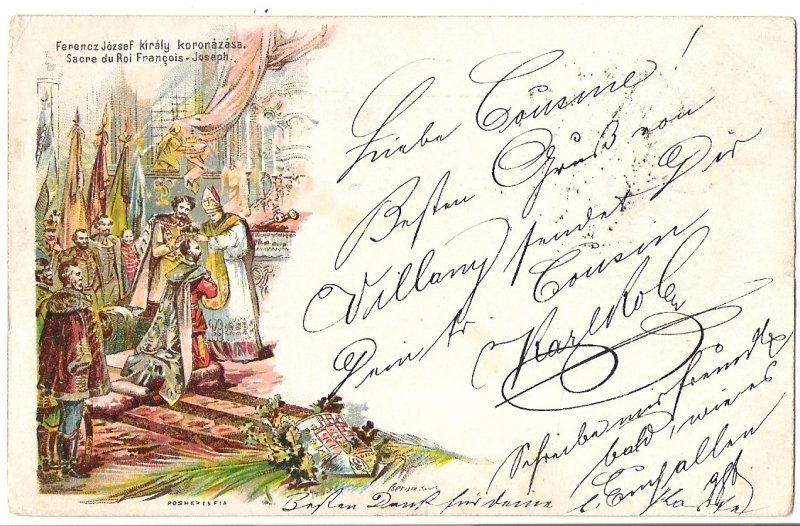 Ferencz József király koronázása.
Sacre du Roi François-Joseph.
Liebe Cousine!
Besten Gruß von
Villany sendet Dir
Dein Cousin
Karl
Schreibe mir
bald, wie es
Besten Dank für deine Karte
POSNER ES FIA